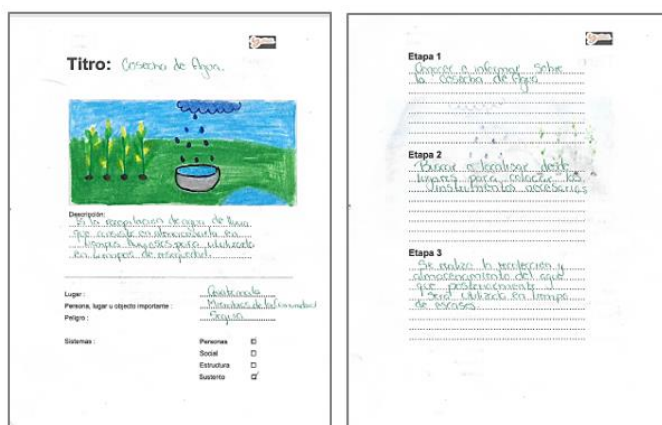 Titro: Cosecha de Agua.
Descripción:
Es la recopilación de agua de lluvia
que consiste en almacenarla en
tiempos lluviosos para utilizarla
en tiempos de
Lugar : Guatemala
Persona, lugar u objecto importante : Miembros de la comunidad
Peligro : Sequia
Sistemas : Personas
Social
Estructura
Sustento
Etapa 1
Conocer e informar sobre
la cosecha de Agua
Etapa 2
Buscar o localizar desde
lugares para colocar los
instrumentos necesarios
Etapa 3
Se realiza la recoleccion y
almacenamiento del agua
que posteriormente
será utilizada en tiempo
de escases